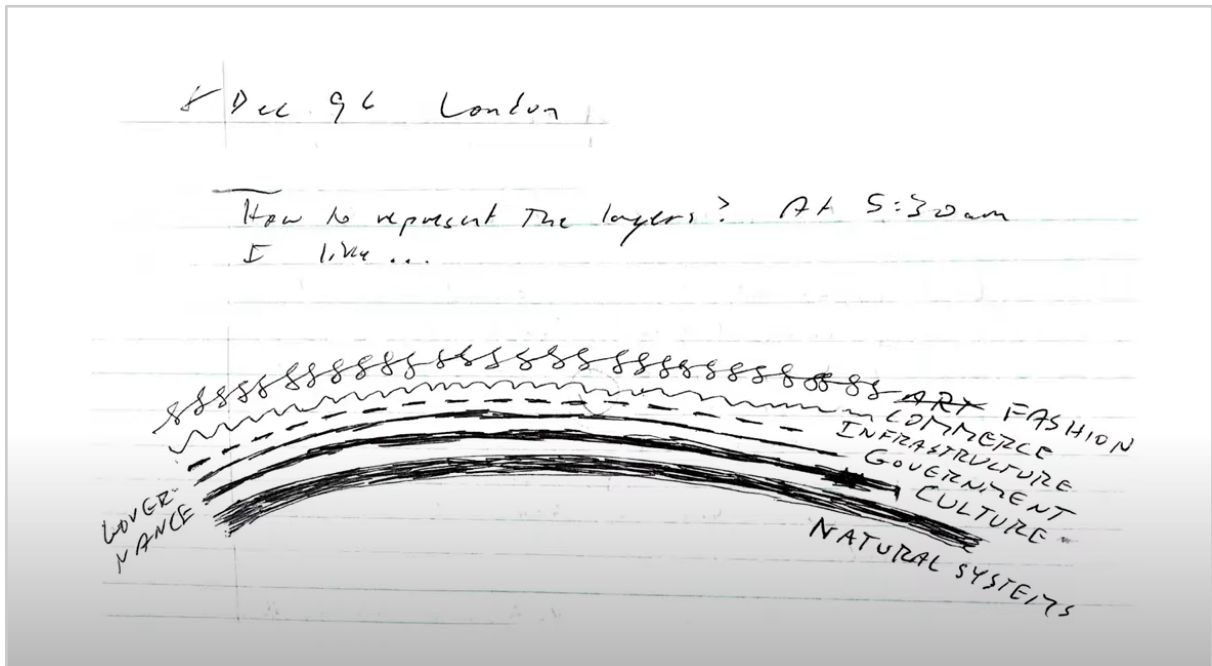 8 Dec 96 London
How to represent the layers? At 5:30am
I like...
ART FASHION
COMMERCE
INFRASTRUCTURE
GOVERNMENT
CULTURE
GOVER-
NANCE
NATURAL SYSTEMS